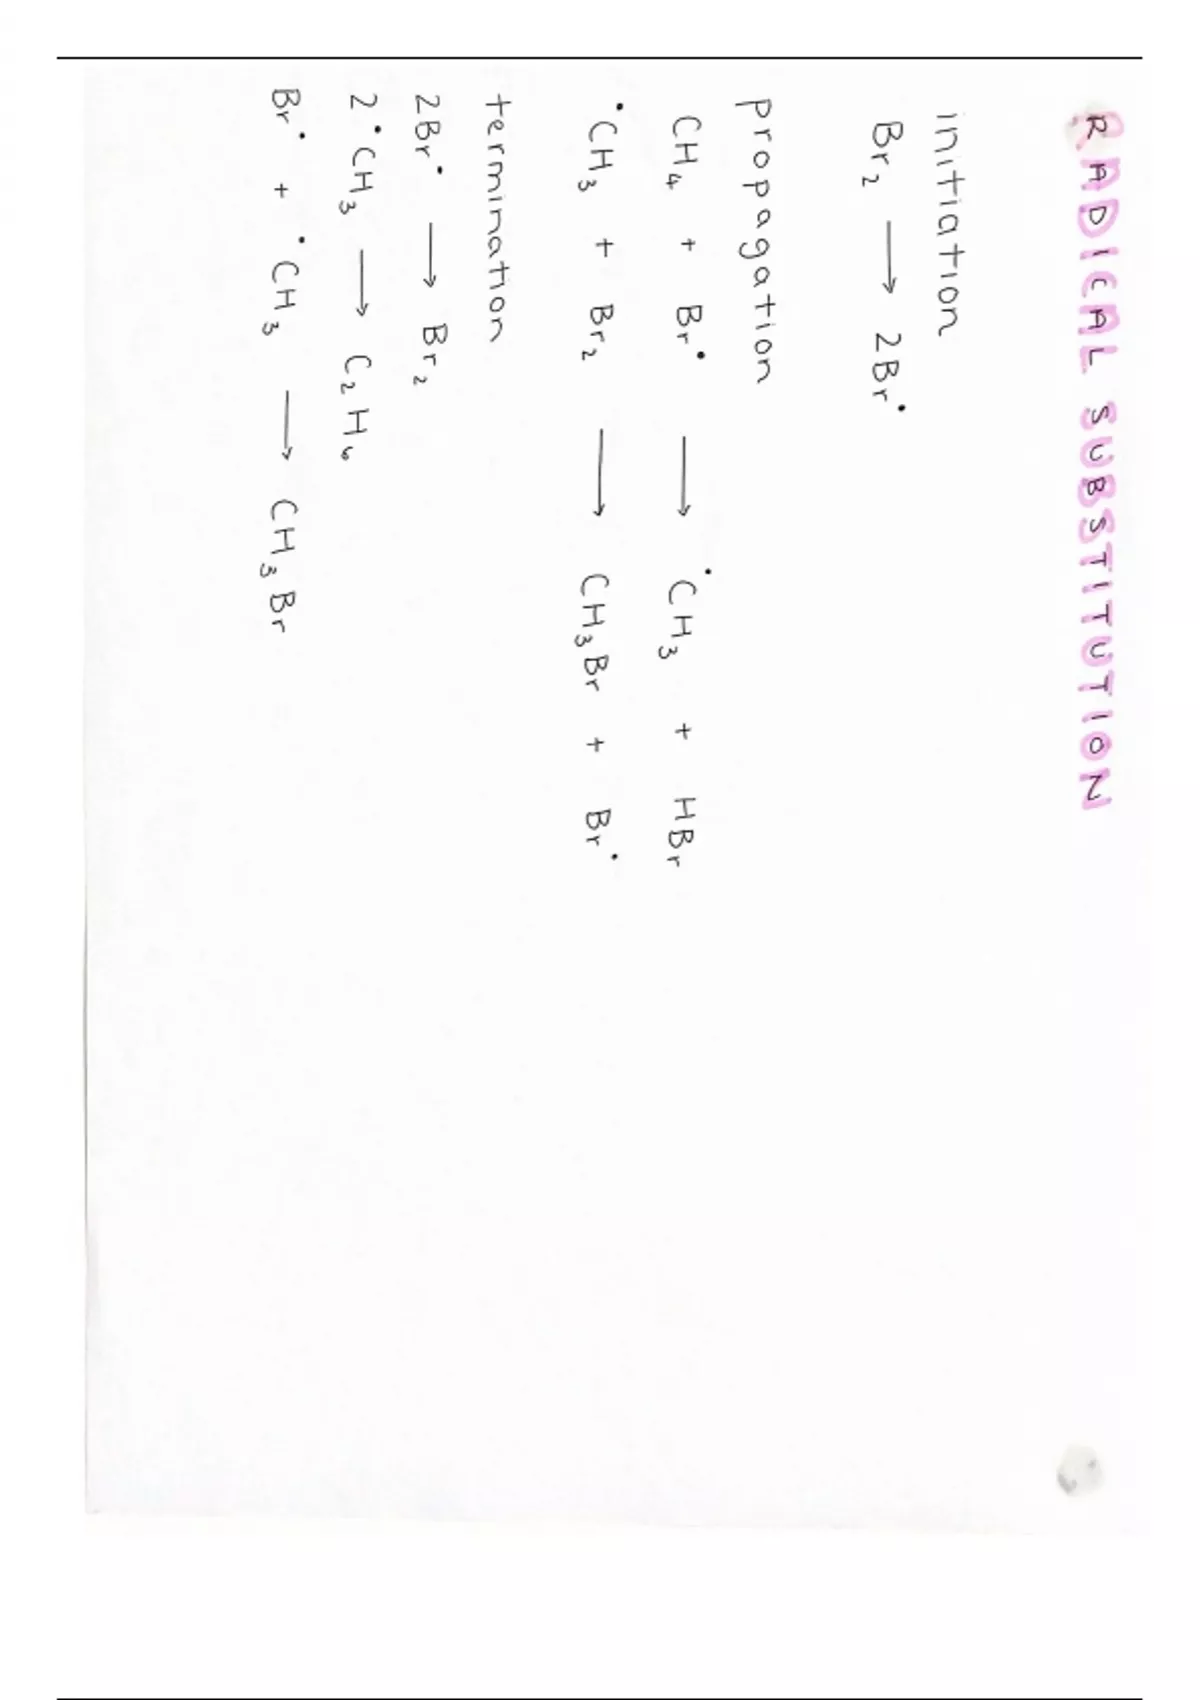 RADICAL SUBSTITUTION
initiation
Br₂ → 2Br•
propagation
CH₄ + Br• → •CH₃ + HBr
•CH₃ + Br₂ → CH₃Br + Br•
termination
2Br• → Br₂
2•CH₃ → C₂H₆
Br• + •CH₃ → CH₃Br